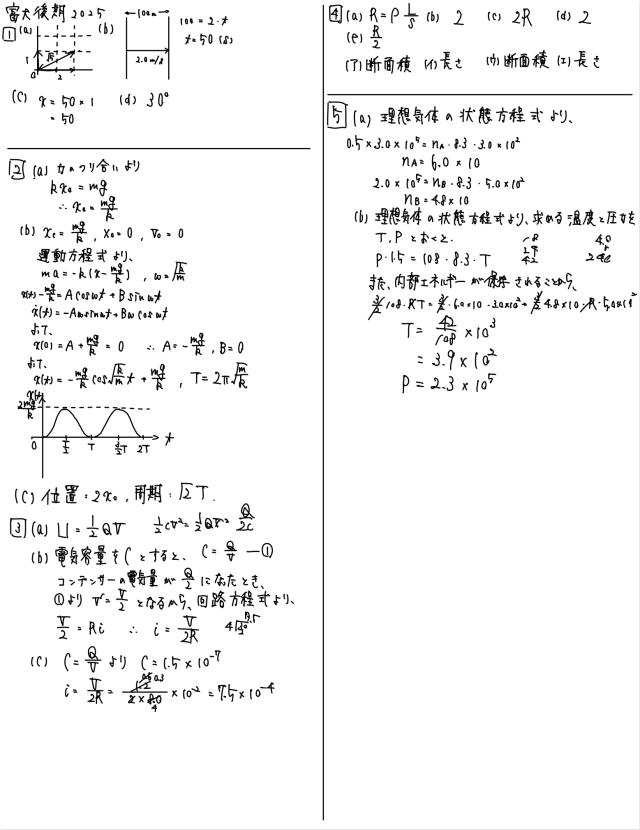 富大後期 2025
1 (a) √5 1 0 2
(b) 100m 2.0m/s
100 = 2・t
t = 50 (s)
(c) x = 50 × 1
= 50
(d) 30°
2 (a) 力のつり合いより
kx₀ = mg
∴ x₀ = mg/k
(b) xc = mg/k , x₀ = 0 , v₀ = 0
運動方程式より、
ma = -k(x - mg/k) , ω = √(k/m)
x(t) - mg/k = A cosωt + B sinωt
ẋ(t) = -Aω sinωt + Bω cosωt
よって、
x(0) = A + mg/k = 0 ∴ A = -mg/k , B = 0
よって、
x(t) = -mg/k cos√(k/m) t + mg/k , T = 2π√(m/k)
x(t)
2mg/k
0 T/2 T 3/2T 2T t
(c) 位置 : 2x₀ , 周期 : √2 T.
3 (a) U = 1/2 QV 1/2 CV² = 1/2 QV = Q²/2C
(b) 電気容量をCとすると、 C = Q/V ―①
コンデンサーの電気量が Q/2 になったとき、
①より V' = V/2 となるから、回路方程式より、
V/2 = Ri ∴ i = V/2R
(c) C = Q/V より C = 1.5 × 10⁻⁷
i = V/2R = 1.2/(2 × 8.0) × 10⁻² = 7.5 × 10⁻⁴
4 (a) R = ρ l/S (b) 2 (c) 2R (d) 2
(e) R/2
(ア) 断面積 (イ) 長さ (ウ) 断面積 (エ) 長さ
5 (a) 理想気体の状態方程式より、
0.5 × 3.0 × 10⁵ = nA・8.3・3.0 × 10²
nA = 6.0 × 10
2.0 × 10⁵ = nB・8.3・5.0 × 10²
nB = 4.8 × 10
(b) 理想気体の状態方程式より、求める温度と圧力を
T, P とおくと、
P・1.5 = 108・8.3・T
また、内部エネルギーが保存されることから、
3/2・108・RT = 3/2・6.0×10・3.0×10² + 3/2・4.8×10・R・5.0×10²
T = 42/108 × 10³
= 3.9 × 10²
P = 2.3 × 10⁵